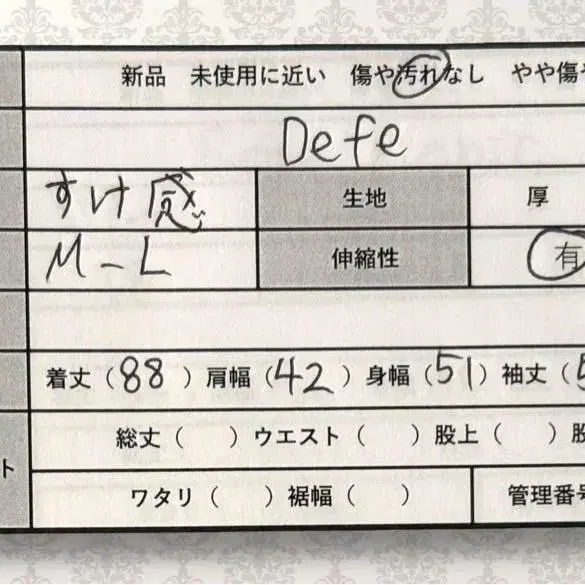 新品 未使用に近い 傷や汚れなし やや傷や
Defe
すけ感 生地 厚
M-L 伸縮性 有
着丈(88)肩幅(42)身幅(51)袖丈(5
総丈( )ウエスト( )股上( )股
ト
ワタリ( )裾幅( ) 管理番号